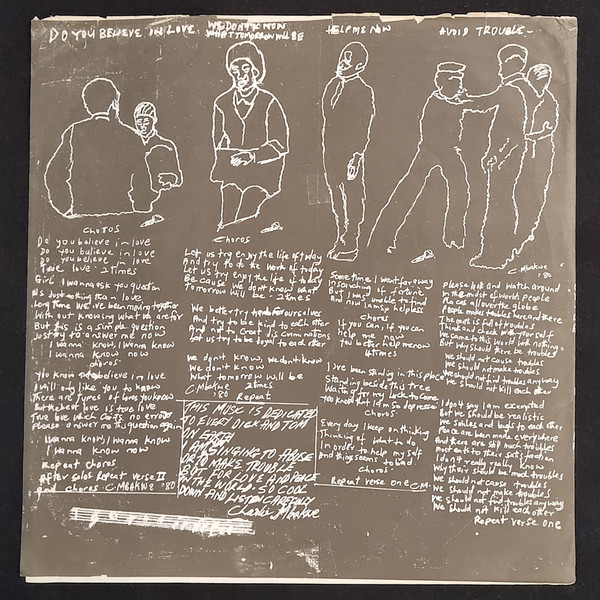 DO YOU BELIEVE IN LOVE
CHOTOS
Do you believe in love
Do you believe in love
Do you believe in love
True love 2 times
Girl I wanna ask you question
Its just nothing than love
Long time we've been moving together
With out knowing what we are for
But this is a simple question
Just try to answer me now
I wanna know, I wanna know
I wanna know now
chorus
You know believe in love
I will only like you to know
There are types of love you know
But the best love is true love
True love which cuts no error
Please answer me this question again
I wanna know, I wanna know
I wanna know now
Repeat chorus
After solos Repeat verse II
And chorus C. Mbakwe '80
WE DON'T KNOW
WHAT TOMORROW WILL BE
Choros
Let us try enjoy the life of today
And try to do the work of today
Let us try enjoy the life of today
Because we dont know what
Tomorrow will be - 2 times
We better try ourselves
And try to be kind to each other
And not to create discommotions
Let us try to be loyal to each other
We dont know, we dont know
We dont know
What tomorrow will be
C. Mbakwe 2 times
'80 Repeat
THIS MUSIC IS DEDICATED
TO EVERY DICK AND TOM
IN EARTH
SINGING TO ABUSE
OR TO MAKE TROUBLE
BUT FOR LOVE AND PEACE
IN THE WORLD SO COOL
DOWN AND LISTEN CAREFULLY
Charles Mbakwe
HELP ME NOW
Sometime I went far away
In searching of fortune
And I was unable to find
And I was so helpless
Chorus
If you can, if you can
help me now
You better help me now
4 times
I've been standing in this place
Standing beside this tree
Waiting for my luck to come
You know that I'm so depressed
Chorus
Every day I keep on thinking
Thinking of what to do
In order to help my self
And things seems to bad.
Chorus
Repeat verse one C.M.
AVOID TROUBLE-
C. Mbakwe
'80
Please look and watch around
In the middle of world's people
Races all over the globe
People makes troubles here and there
The earth is full of troubles
Think and ask with your self
We came to this world with nothing
But why should there be troubles
We should not cause troubles
We should not make troubles
We should not find troubles anyway
We should not kill each other
I don't say I am exempted
But we should be realistic
We smiles and begs to each other
Peace are been made everywhere
And there are still much troubles
Most earth to their satisfaction
I don't really really know
Why there should be much troubles
We should not cause troubles
We should not make troubles
We should not find troubles anyways
We should not kill each other
Repeat verse one